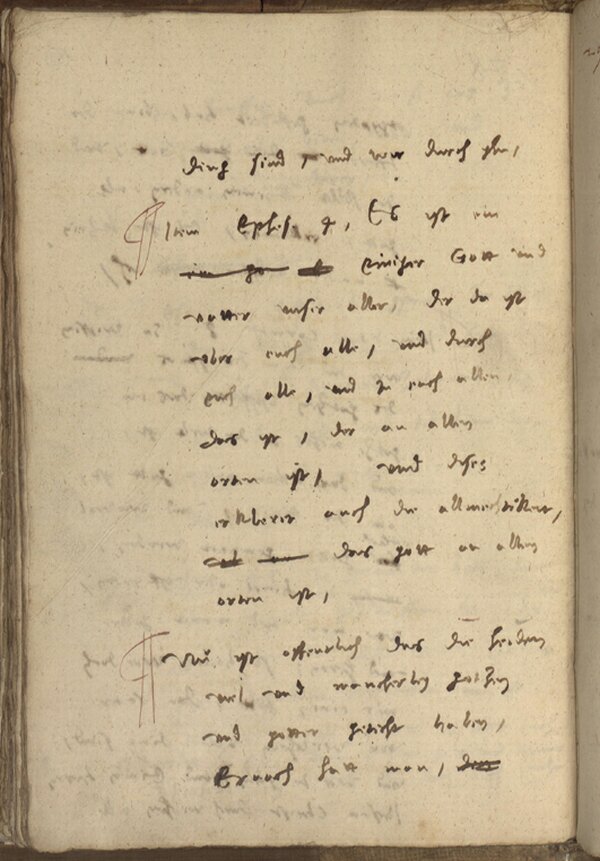 ding sind, und wir durch yhn,
¶ Item Ephes 4, Es ist ein
einiger Gott und
vatter unser aller, der da ist
uber euch alle, und durch
euch alle, und in euch allen
das ist, der an allen
orten ist, und dises
erklerer auch die allmechtikeit,
das gott an allen
orten ist,
¶ Nu ist offentlich das die heiden
viel und mancherley gotzen
und gotter geticht haben,
Ernoch hatt man,